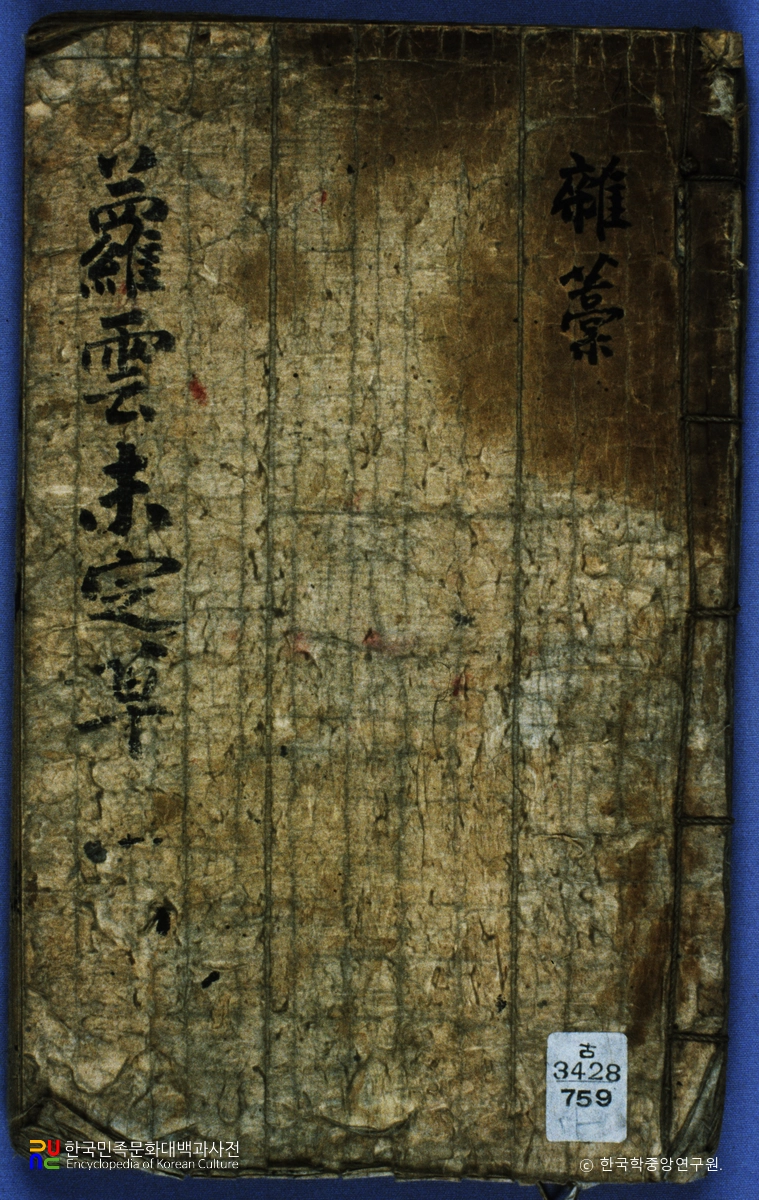 雜藁
蘿雲未定草
古
3428
759
한국민족문화대백과사전
Encyclopedia of Korean Culture
© 한국학중앙연구원.